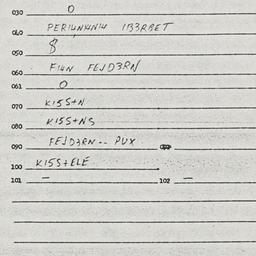 030 0
040 PERI4N4NI4 IB3RBET
050 8
060 FI4N FEJD3RN
061 0
070 KISS+N
080 KISS+NS
090 FEJD3RN-- PUX
100 KISS+ELÉ
101 – 102 –